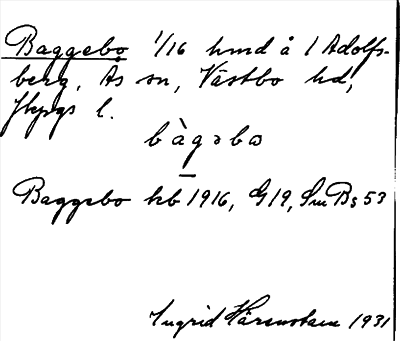 Baggebo 1/16 hmd å 1 Adolfs-
berg, Ås sn, Västbo hd,
Jkpgs l.
bàgəbω
Baggebo hb 1916, G 19, Sm Bs 53
Ingrid 1931